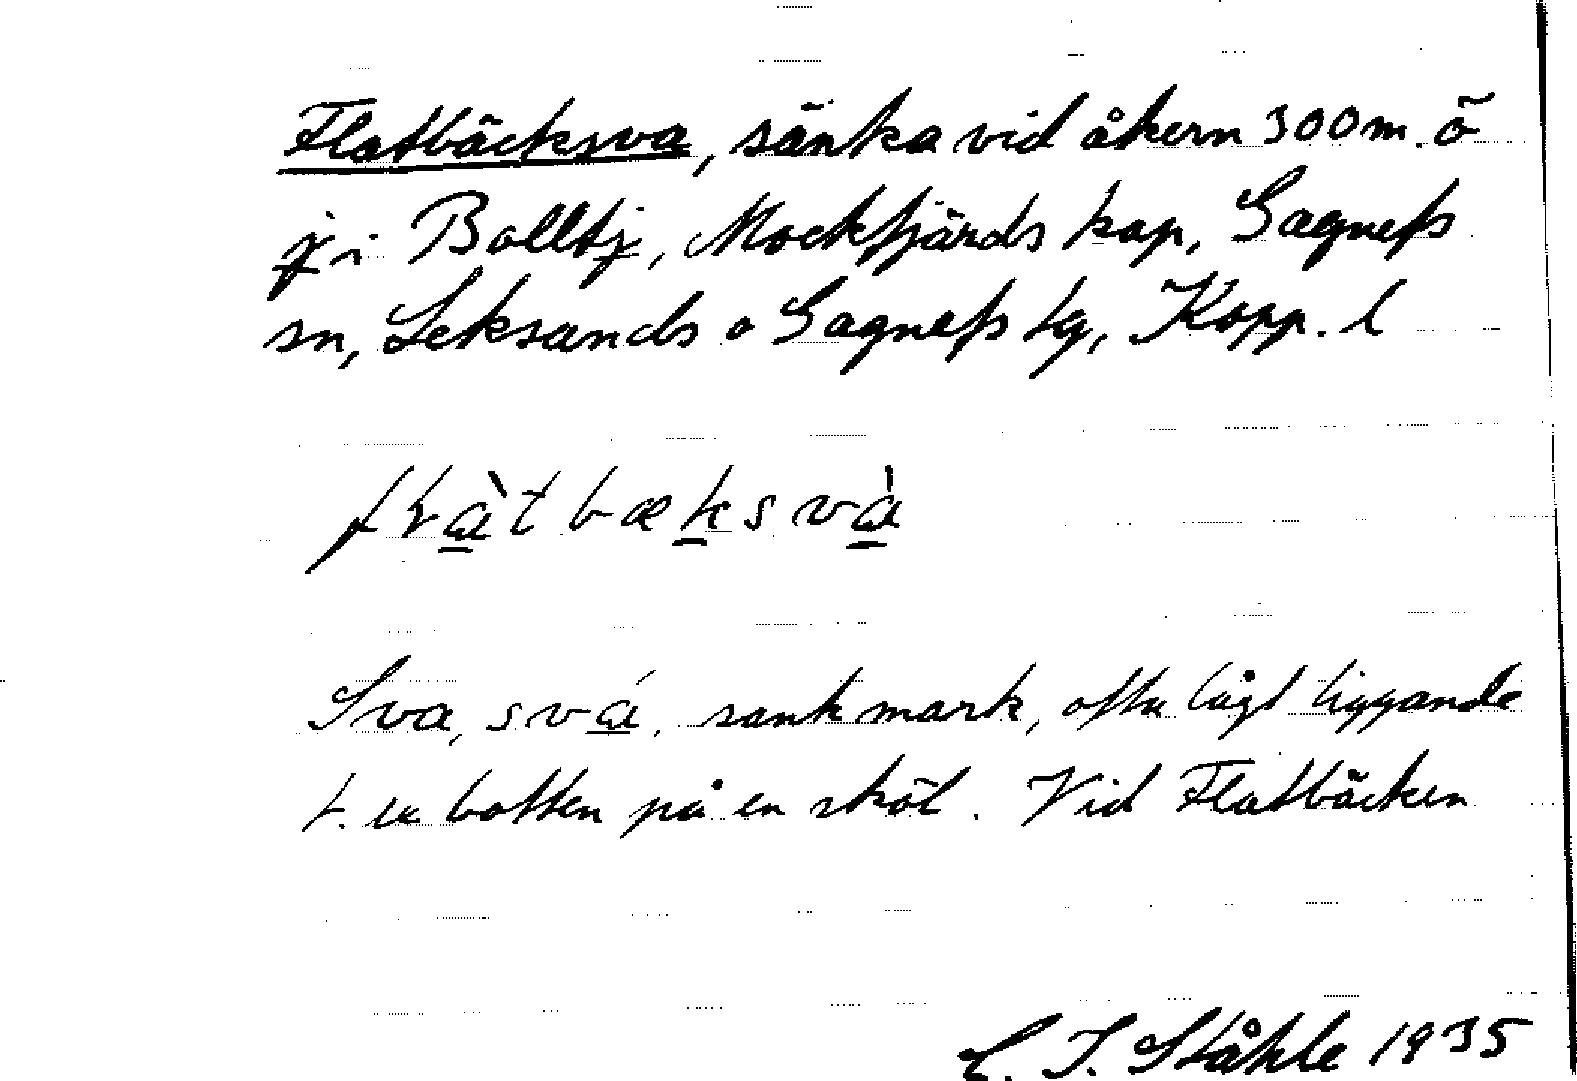 Flatbäcksva, sänka vid åkern 300 m. ö
i Balltj, Mockfjärds kap, Gagnefs
sn, Leksands o Gagnefs tg, Kopp. l
Sva, svá, sank mark, ofta lågt liggande
t. ex botten på en sköl. Vid Flatbäcken
C. I. Ståhle 1935